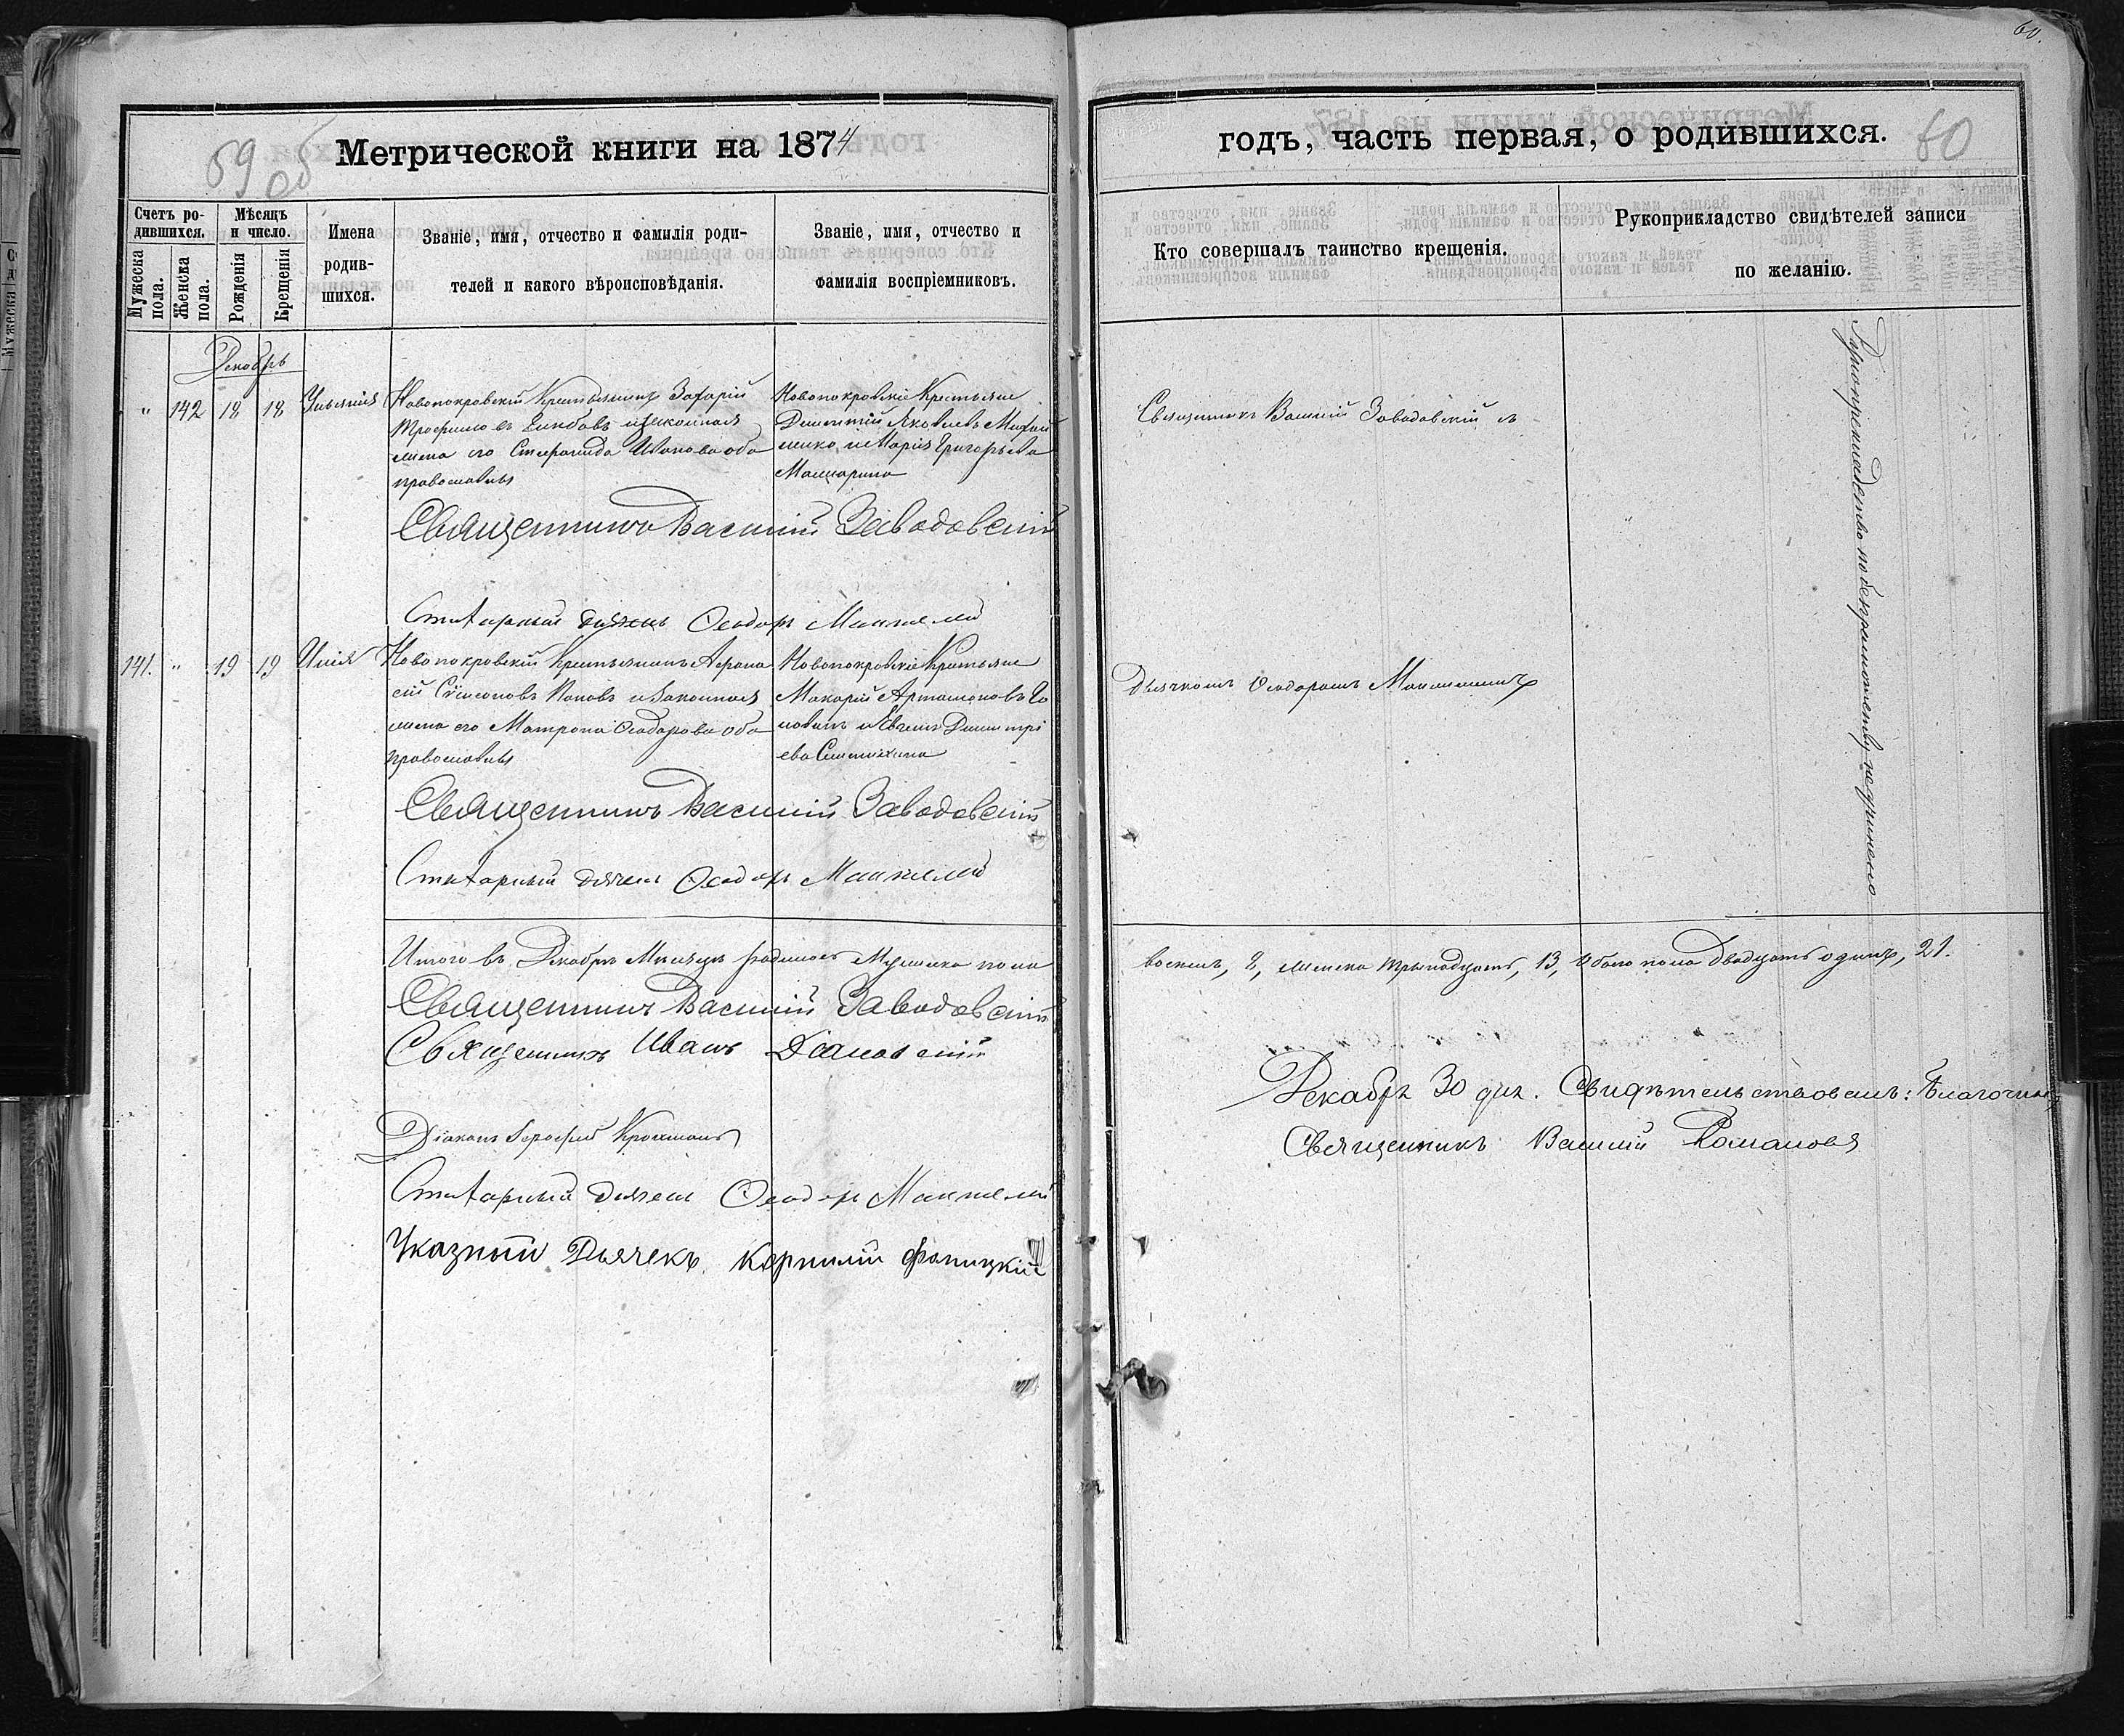 60.
59 об
Метрической книги на 1874
годъ, часть первая, о родившихся.
60
Счетъ ро-
дившихся.
Мужеска
пола.
Женска
пола.
Мѣсяцъ
и число.
Рожденія
Крещенія
Имена
родив-
шихся.
Званіе, имя, отчество и фамилія роди-
телей и какого вѣроисповѣданія.
Званіе, имя, отчество и
фамилія воспріемниковъ.
Кто совершалъ таинство крещенія.
Рукоприкладство свидѣтелей записи
по желанію.
Декабрь
" 142 18 18
Новопокровскій Крестьянинъ Захарій
Трофимовъ и законная
жена его Степанида Иванова оба
православны
Новопокровскіе Крестьяне
Димитрій Яковлевъ
и Марія Григорьева
Священникъ Василій Заводовскій съ
Священникъ Василій Заводовскій
Дьячекъ Ѳеодоръ
141. " 19 19 Илія
Новопокровскій Крестьянинъ Аѳана
сій Сѵмеоновъ Поповъ и законная
жена его Матрона Ѳеодорова оба
православны
Новопокровскіе Крестьяне
Макарій Артамоновъ Го
ловинъ и Димитрі
ева
Дьячкомъ Ѳеодоромъ
Священникъ Василій Заводовскій
Дьячекъ Ѳеодоръ
Рукоприкладства по безграмотству не учинено
Итого въ Декабрѣ Мѣсяцѣ родилось Мужеска пола
восемь, 8, женска тринадцать, 13, Обоего пола двадцать одинъ, 21.
Священникъ Василій Заводовскій
Священникъ Иванъ
Діаконъ
Дьячекъ Ѳеодоръ
Указный Дьячекъ Корнилій
Декабря 30 дня. Свидѣтельствовалъ: Благочинный
Священникъ Василій Романовъ